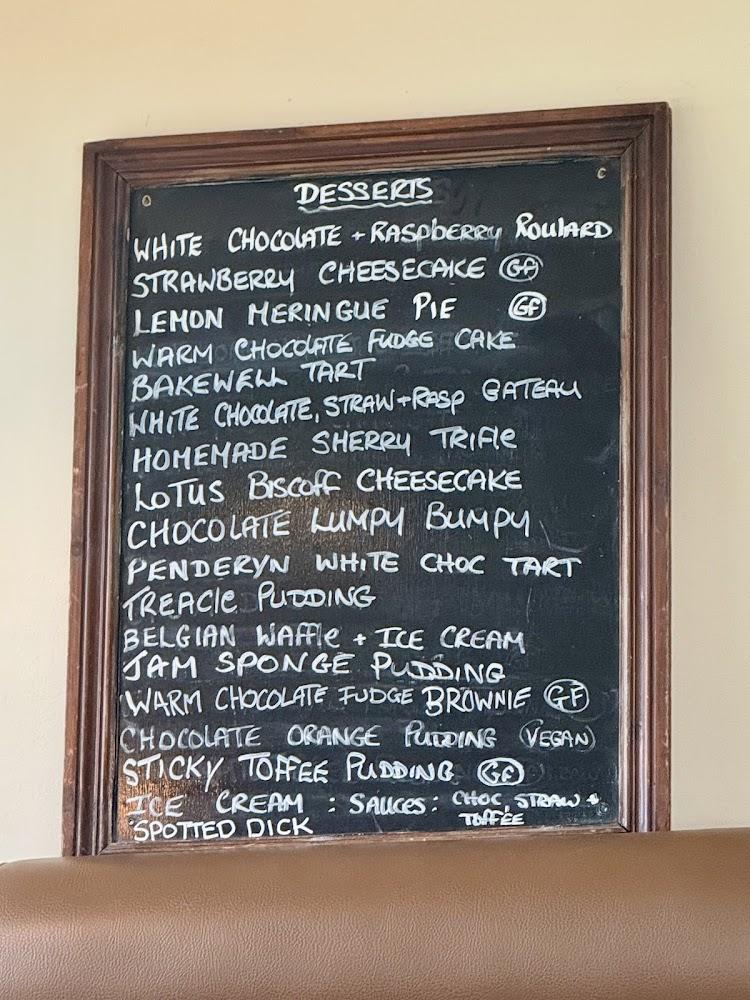 DESSERTS
WHITE CHOCOLATE + RASPBERRY ROULARD
STRAWBERRY CHEESECAKE GF
LEMON MERINGUE PIE GF
WARM CHOCOLATE FUDGE CAKE
BAKEWELL TART
WHITE CHOCOLATE, STRAW + RASP GATEAU
HOMEMADE SHERRY TRIFLE
LOTUS BISCOFF CHEESECAKE
CHOCOLATE LUMPY BUMPY
PENDERYN WHITE CHOC TART
TREACLE PUDDING
BELGIAN WAFFLE + ICE CREAM
JAM SPONGE PUDDING
WARM CHOCOLATE FUDGE BROWNIE GF
CHOCOLATE ORANGE PUDDING VEGAN
STICKY TOFFEE PUDDING GF
ICE CREAM : SAUCES : CHOC, STRAW +
TOFFEE
SPOTTED DICK